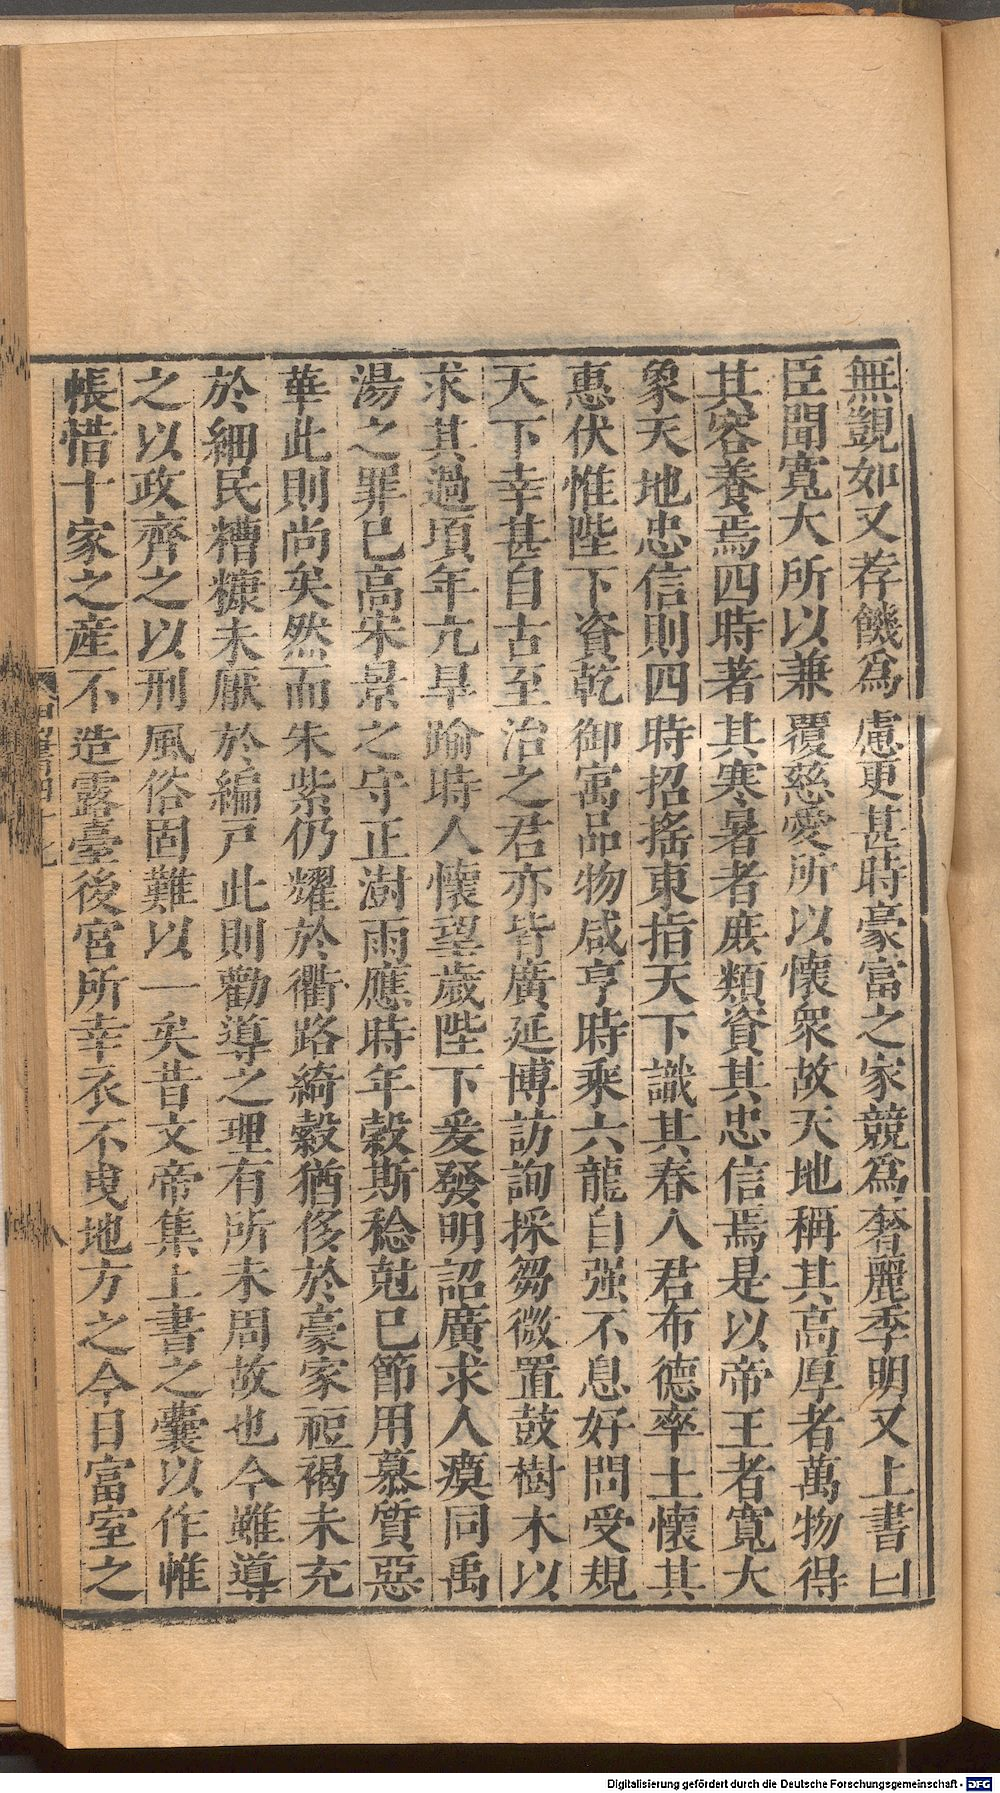 無覬如又荐饑爲慮更甚時豪富之家競爲奢麗季明又上書曰
臣聞寬大所以兼覆慈愛所以懷衆故天地稱其高厚者萬物得
其容養焉四時著其寒暑者庶類資其忠信焉是以帝王者寬大
象天地忠信則四時招搖東指天下識其春人君布德率土懷其
惠伏惟陛下資乾御寓品物咸亨時乘六龍自强不息好問受規
天下幸甚自古至治之君亦皆廣延博訪詢採芻微置鼓樹木以
求其過頃年亢旱踰時人懷望歲陛下爰發明詔廣求人瘼同禹
湯之罪已高宋景之守正澍雨應時年穀斯稔尅已節用慕質惡
華此則尚矣然而朱紫仍耀於衢路綺縠猶侈於豪家裋褐未充
於細民糟糠未厭於編戸此則勸導之理有所未周故也今雖導
之以政齊之以刑風俗固難以一矣昔文帝集上書之囊以作帷
帳惜十家之産不造露臺後宮所幸衣不曳地方之今日富室之
Digitalisierung gefördert durch die Deutsche Forschungsgemeinschaft - DFG